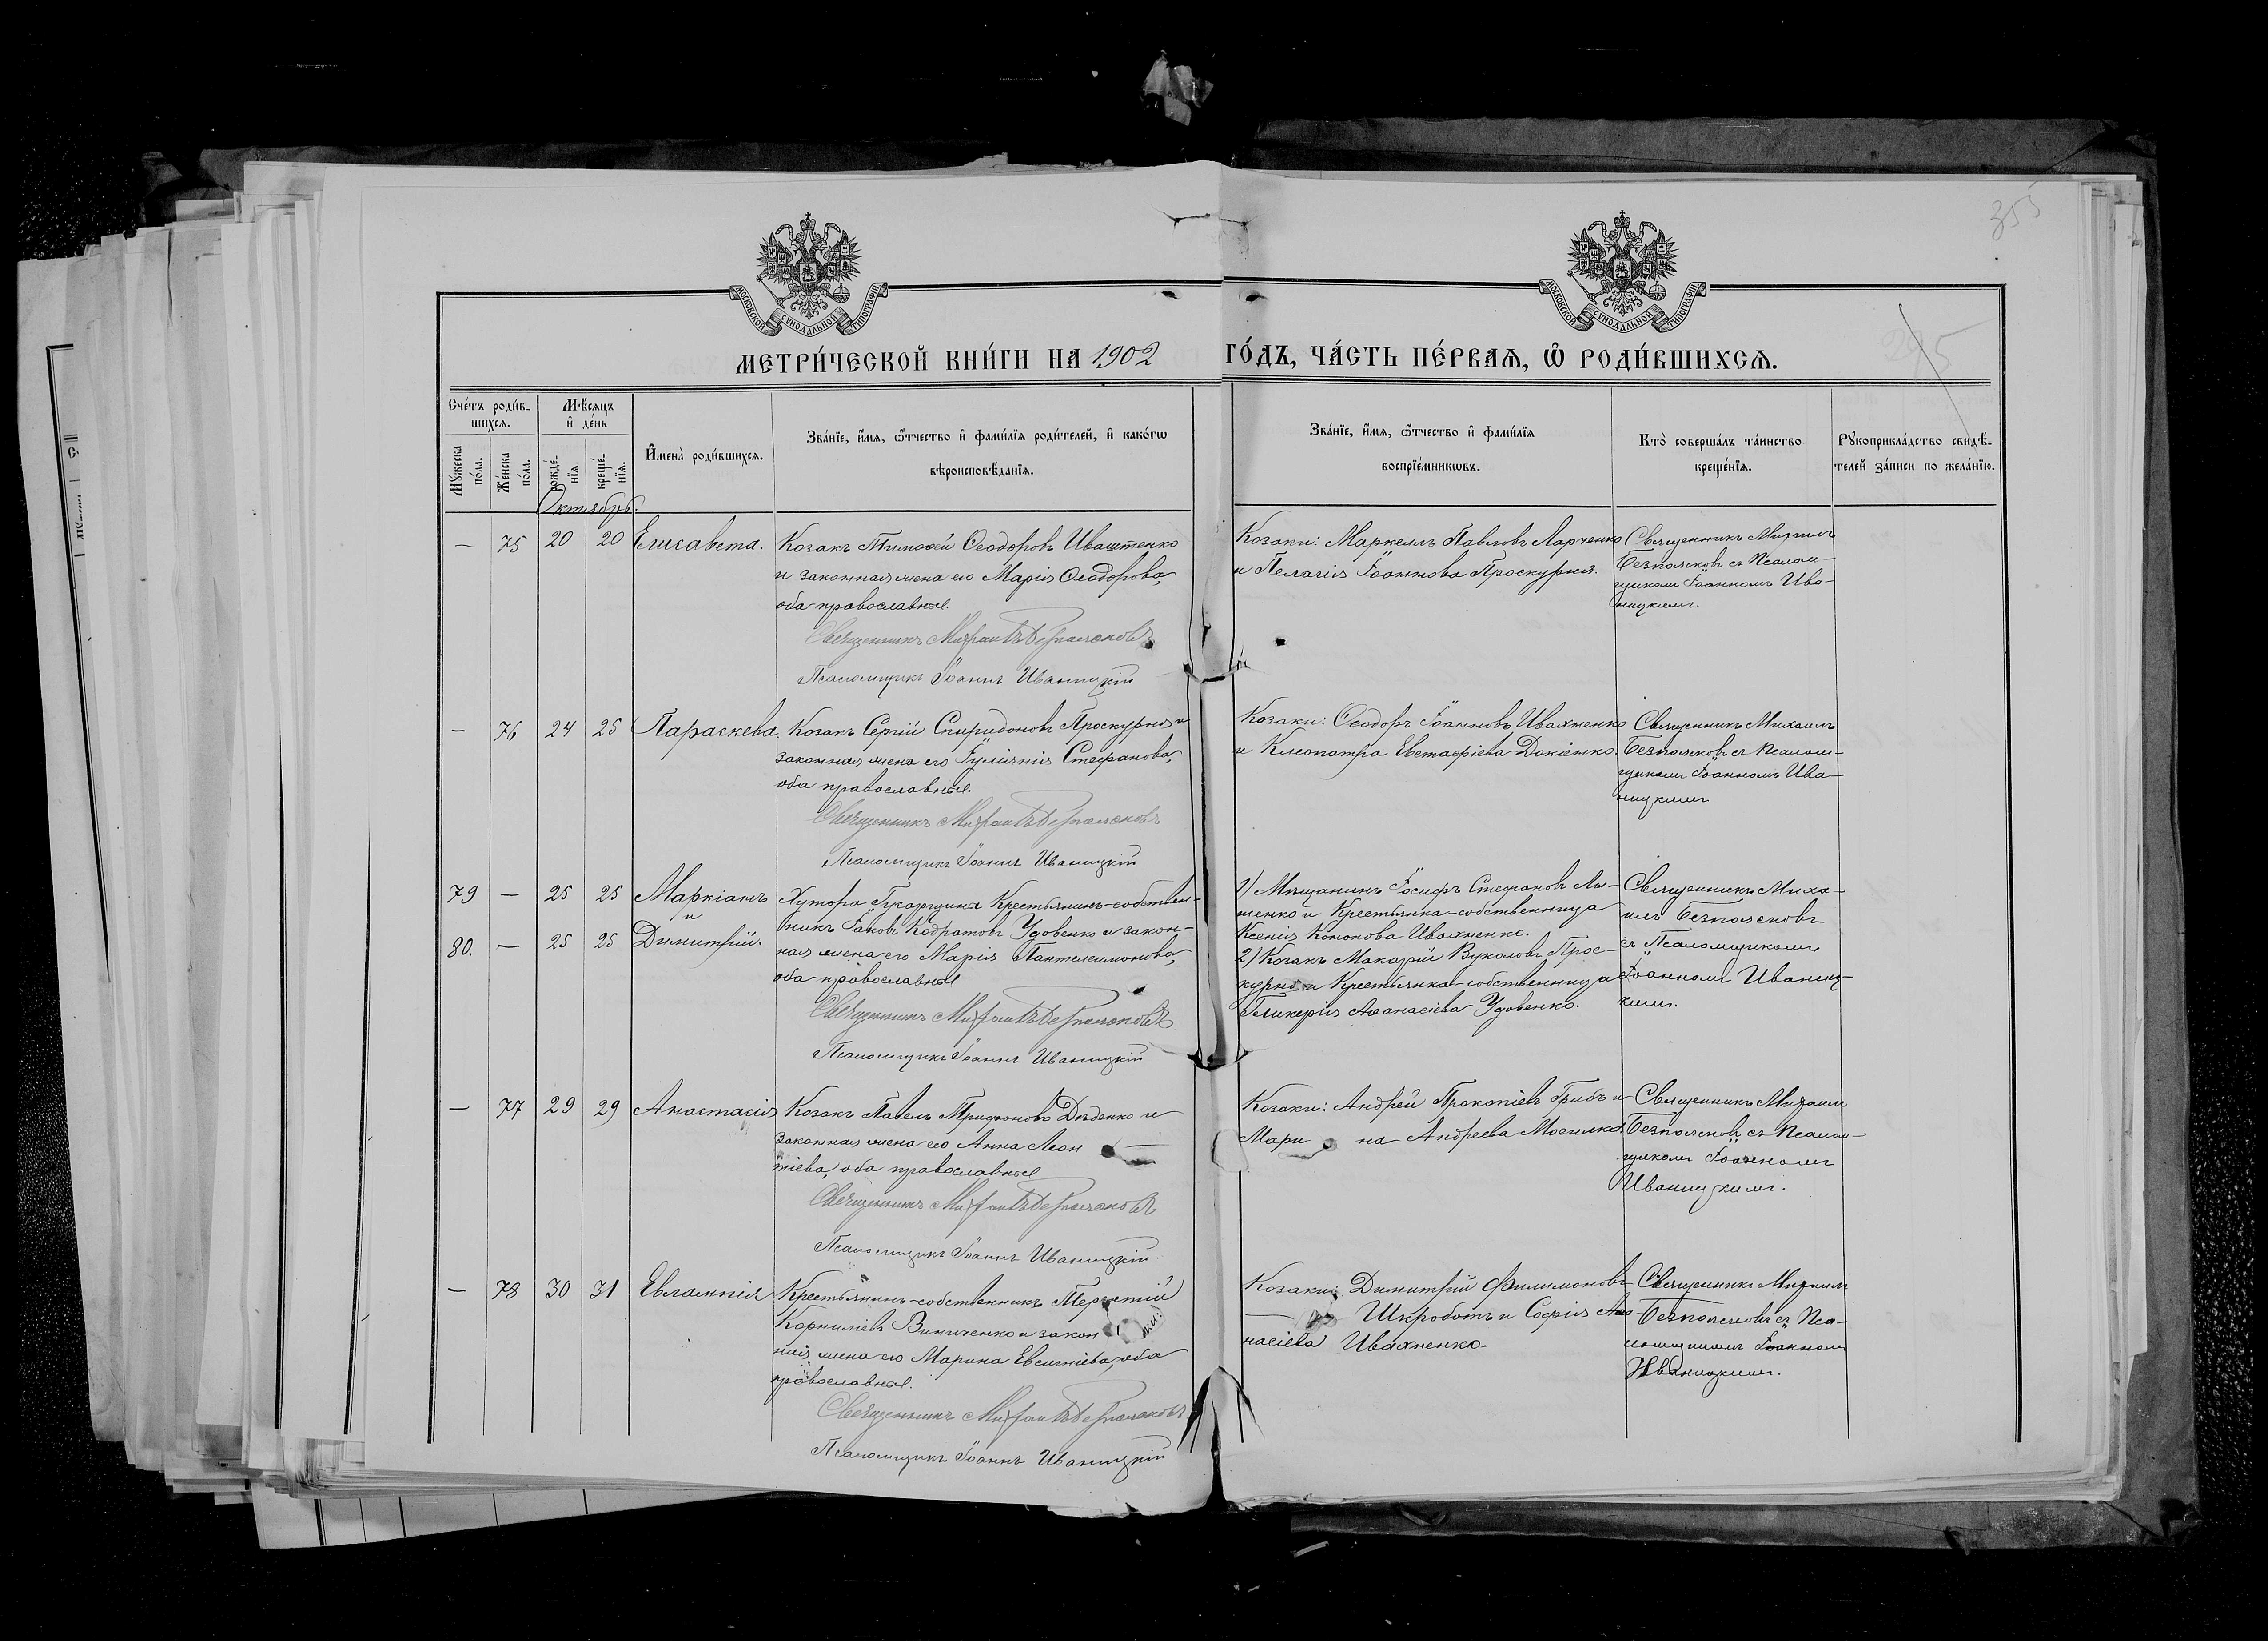 355
МОСКОВСКОЙ СУНОДАЛЬНОЙ ТИПОГРАФІИ
МОСКОВСКОЙ СУНОДАЛЬНОЙ ТИПОГРАФІИ
МЕТРИ́ЧЕСКОЙ КНИ́ГИ НА 1902 ГО́ДЪ, ЧА́СТЬ ПЕ́РВАѦ, Ѡ РОДИ́ВШИХСѦ.
Сче́тъ роди́в-
шихсѧ.
Мꙋжеска по́ла.
Же́нска по́ла.
Мѣ́сѧцъ
и҆ де́нь
рожде́-
нїѧ.
креще́-
нїѧ.
И҆мена̀ роди́вшихсѧ.
Зва́нїе, и҆́мѧ, ѻ҆́тчество и҆ фами́лїѧ роди́телей, и҆ како́гѡ
вѣроисповѣ́данїѧ.
Зва́нїе, и҆́мѧ, ѻ҆́тчество и҆ фами́лїѧ
воспрїе́мникѡвъ.
Кто̀ соверша́лъ та́инство
креще́нїѧ.
Рꙋкоприкла́дство свидѣ́-
телей за́писи по жела́нїю.
Октябрь.
— 75 20 20 Елисавета.
Козакъ Тимоѳей Ѳеодоровъ Иваштенко
и законная жена его Марія Ѳеодорова,
оба православные.
Священникъ Михаилъ Безполсковъ
Псаломщикъ Іоаннъ Иваницкій
Козаки: Маркеллъ Павловъ Ларченко
и Пелагія Іоаннова Проскурня.
Священникъ Михаилъ
Безполсковъ съ Псалом-
щикомъ Іоанномъ Ива-
ницкимъ.
— 76 24 25 Параскева.
Козакъ Сергій Спиридоновъ Проскурня и
законная жена его Іуліанія Стефанова,
оба православные.
Священникъ Михаилъ Безполсковъ
Псаломщикъ Іоаннъ Иваницкій
Козаки: Ѳеодоръ Іоанновъ Ивахненко
и Клеопатра Евстафіева Дакіенко.
Священникъ Михаилъ
Безполсковъ съ Псалом-
щикомъ Іоанномъ Ива-
ницкимъ
79 — 25 25 Маркіанъ
и
80. — 25 25 Димитрій.
Хутора Крестьянинъ-собствен-
никъ Іаковъ Кодратовъ Удовенко и закон-
ная жена его Марія Пантелеимонова,
оба православные
Священникъ Михаилъ Безполсковъ
Псаломщикъ Іоаннъ Иваницкій
1) Мѣщанинъ Іосифъ Стефановъ Ля-
шенко и Крестьянка-собственница
Ксенія Кононова Ивахненко.
2) Козакъ Макарій Вуколовъ Прос-
курня и Крестьянка-собственница
Гликерія Аѳанасіева Удовенко.
Священникъ Миха-
илъ Безполсковъ
съ Псаломщикомъ
Іоанномъ Иваниц-
кимъ.
— 77 29 29 Анастасія
Козакъ Павелъ Трифоновъ Дѣденко и
законная жена его Анна Леон —
тіева, оба православные
Священникъ Михаилъ Безполсковъ
Псаломщикъ Іоаннъ Иваницкій.
Козаки: Андрей Прокопіевъ Грибъ и
Мари на Андреева Могилка.
Священникъ Михаилъ
Безполсковъ съ Псалом-
щикомъ Іоанномъ
Иваницкимъ.
— 78 30 31 Евлампія
Крестьянинъ-собственникъ Терентій
Корниліевъ Виниченко и закон
ная жена его Марина Евсигніева, оба
православные.
Священникъ Михаилъ Безполсковъ
Псаломщикъ Іоаннъ Иваницкій
Козаки: Димитрій Филимоновъ
— Шкроботъ и Софія Аѳа-
насіева Ивахненко.
Священникъ Михаилъ
Безполсковъ съ Пса-
ломщикомъ Іоанномъ
Иваницкимъ.